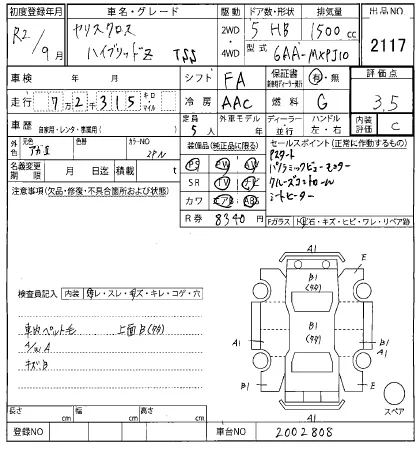 初度登録年月 車名・グレード 駆動 ドア数/形状 排気量 出品NO
R2/9月 ヤリスクロス ハイブリッドZ TSS 2WD・4WD 5 HB 1500cc
型式 6AA-MXPJ10 2117
車検 年 月 シフト FA 保証書 有・無 評価点
走行 7万2千315 キロ・マイル 冷房 AAC 燃料 G 3.5
車歴 自家用・レンタ・事業用( ) 定員 5人 外車モデル 年 ディーラー・並行 ハンドル 左・右 内装評価 C
外色 元色 色替 カラーNO 2PN
装備品(純正品に限る) セールスポイント(正常に作動するもの)
名義変更期限 月 日迄 積載 t
PS PW AW Pスタート
SR TV ナビ パノラミックビューモニター
カワ エアB ABS クルーズコントロール
シートヒーター
注意事項(欠品・修復・不具合箇所および状態)
R券 8340円 Fガラス ト石・キズ・ヒビ・ワレ・リペア跡
検査員記入 内装 汚レ・スレ・キズ・キレ・コゲ・穴
車内ペット毛 上面B(タタ)
A/W A
キズB
A1
E
B1
(タタ)
A1
B1
(タタ)
A1
B1
E
A1
スペア
長さ cm 幅 cm 高さ cm
登録NO 車台NO 2002808